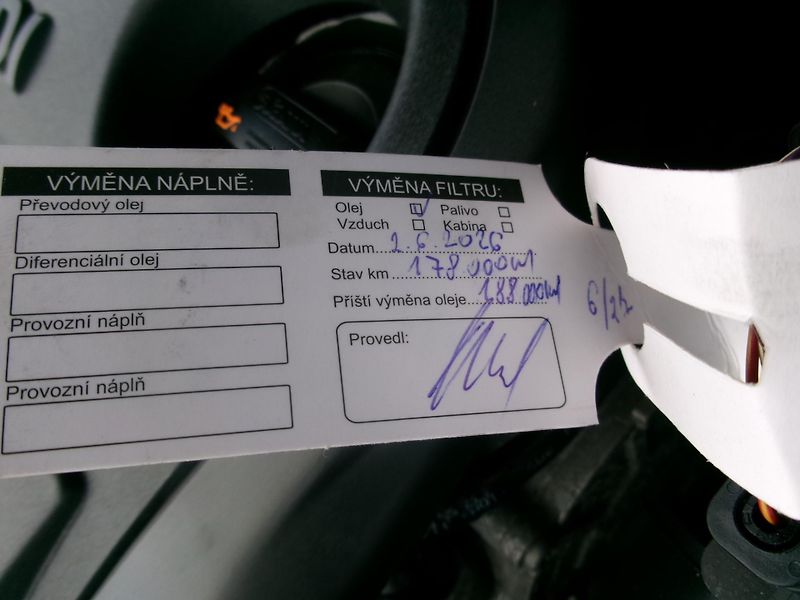 VÝMĚNA NÁPLNĚ:
Převodový olej
Diferenciální olej
Provozní náplň
Provozní náplň
VÝMĚNA FILTRU:
Olej Palivo
Vzduch Kabina
Datum 2.6.2026
Stav km 178 000km
Příští výměna oleje 188 000km
Provedl: